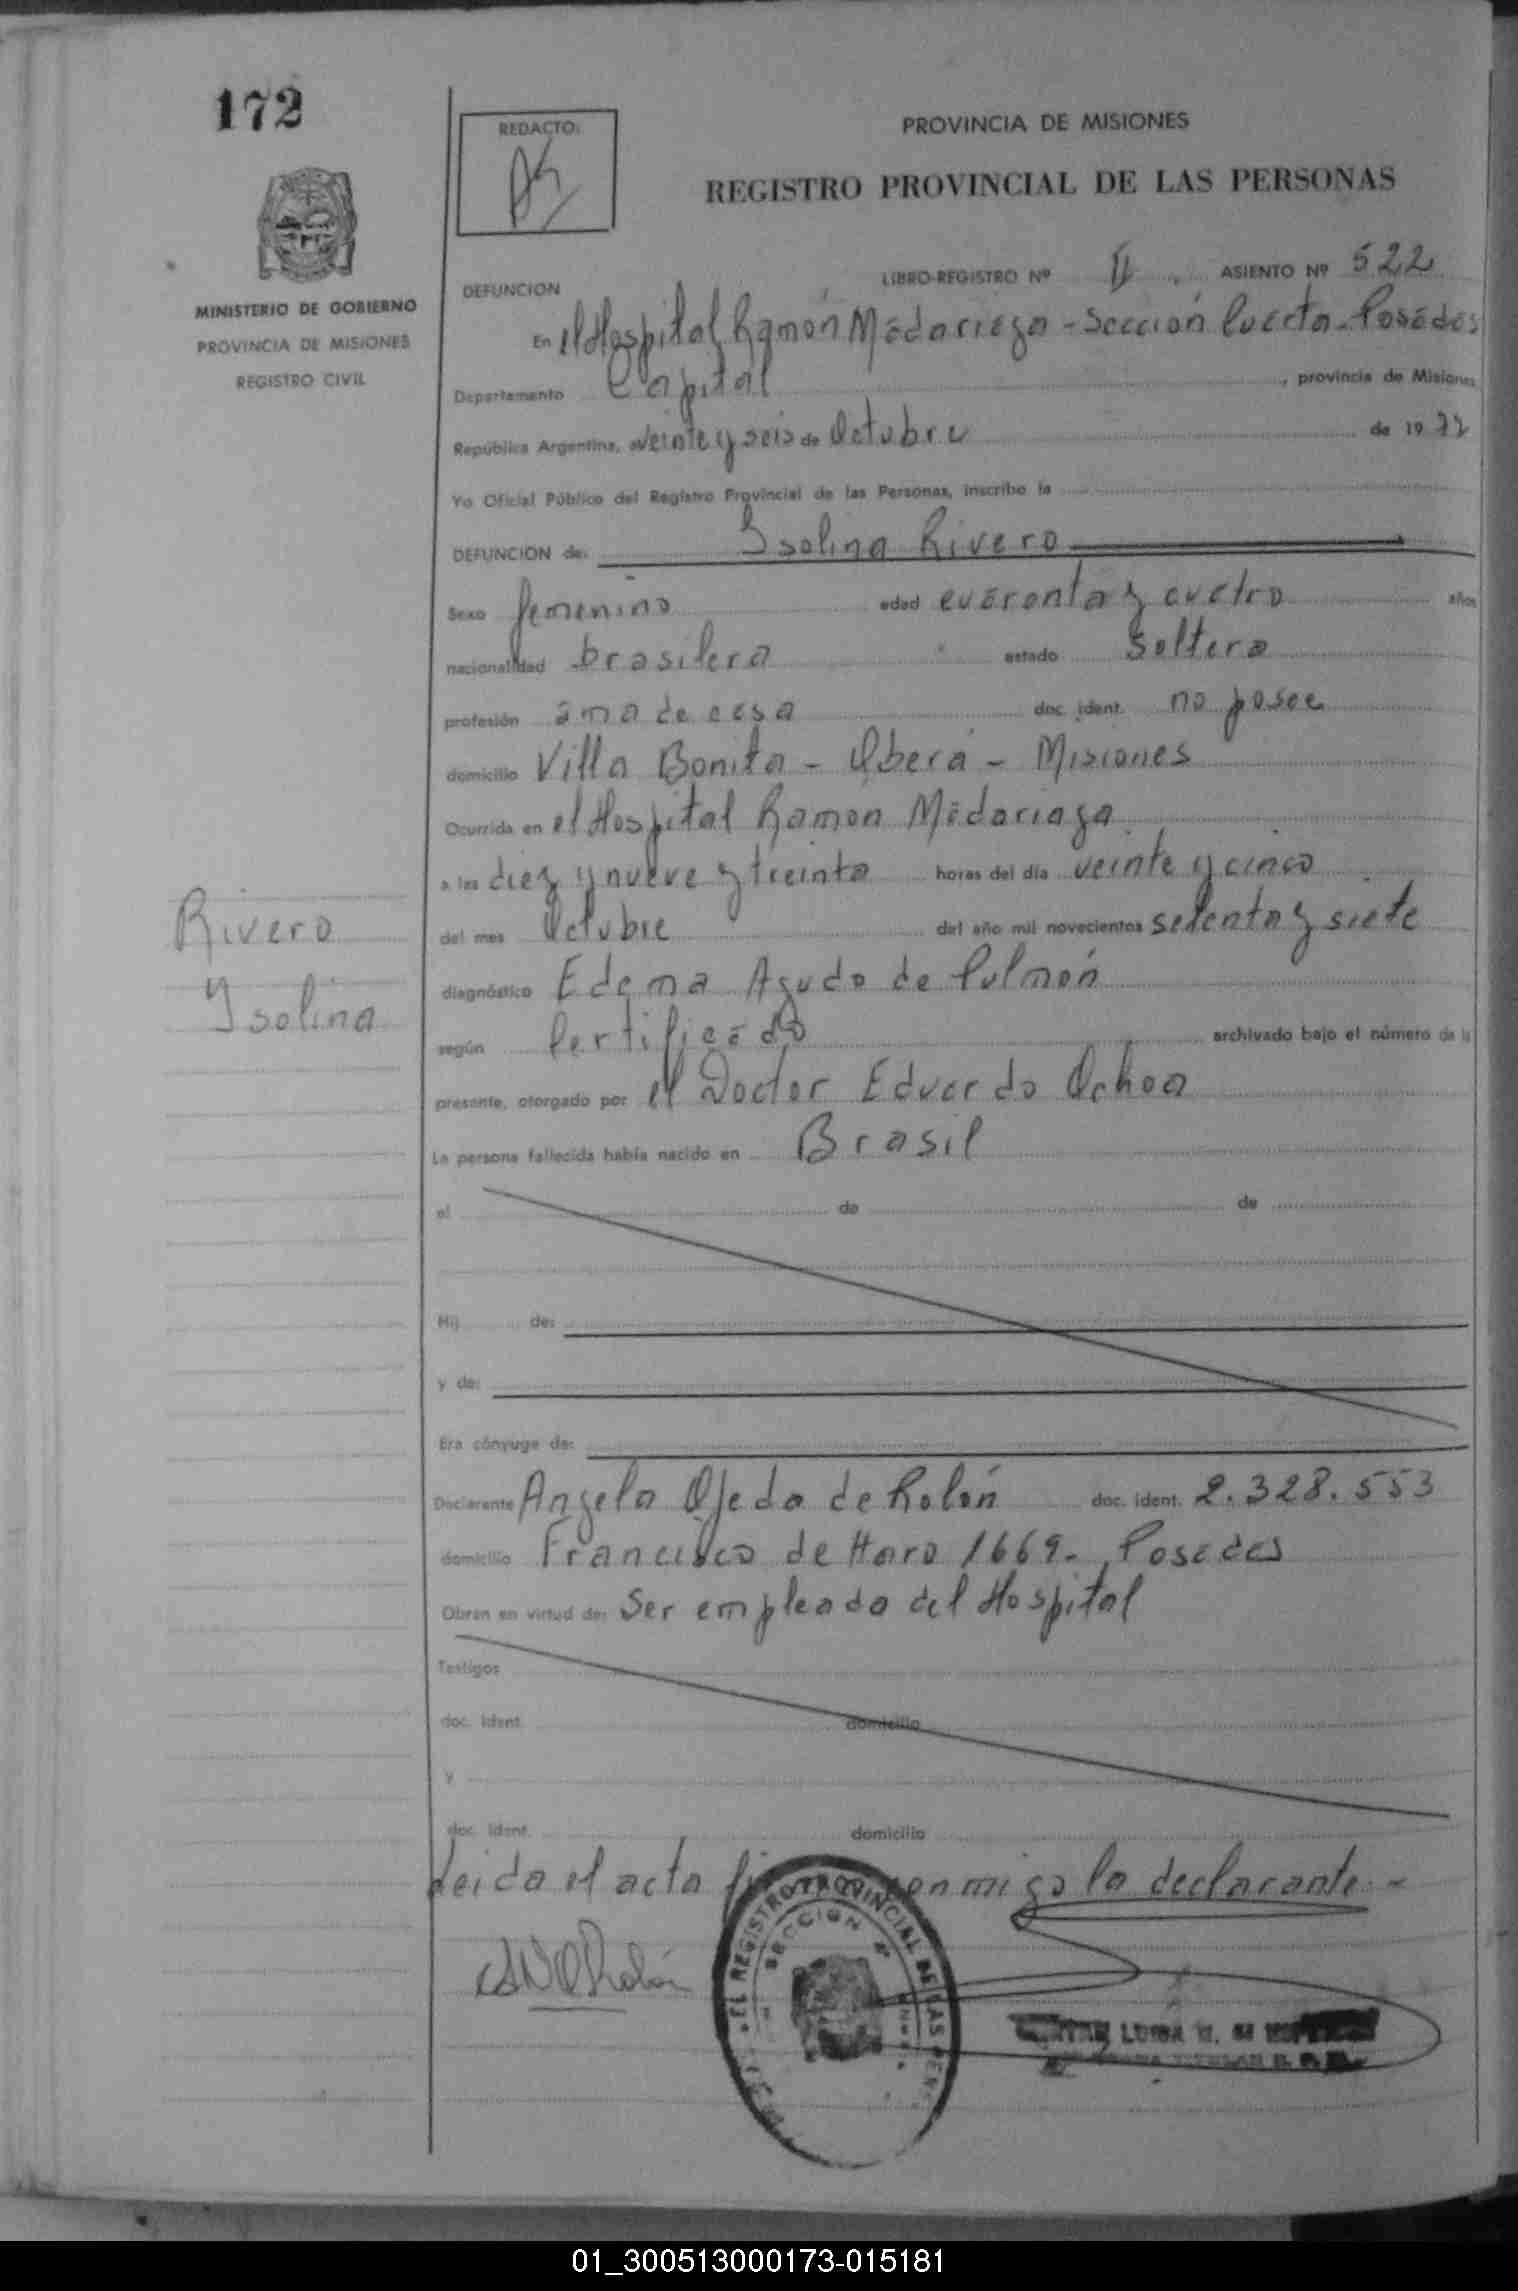 172
REDACTO:
PROVINCIA DE MISIONES
REGISTRO PROVINCIAL DE LAS PERSONAS
MINISTERIO DE GOBIERNO
PROVINCIA DE MISIONES
REGISTRO CIVIL
LIBRO-REGISTRO Nº II ASIENTO Nº 522
DEFUNCION
En el Hospital Ramón Madariaga - Sección Cuarta - Posadas
Departamento Capital, provincia de Misiones
República Argentina, a veinte y seis de Octubre de 1977
Yo Oficial Público del Registro Provincial de las Personas, inscribo la
DEFUNCION de: Ysolina Rivero
Sexo femenino edad cuarenta y cuatro años
nacionalidad brasilera estado Soltera
profesión ama de casa doc. ident. no posee
domicilio Villa Bonita - Oberá - Misiones
Ocurrida en el Hospital Ramón Madariaga
a las diez y nueve y treinta horas del día veinte y cinco
del mes Octubre del año mil novecientos setenta y siete
Rivero
Ysolina
diagnóstico Edema Agudo de Pulmón
según Certificado archivado bajo el número de la
presente, otorgado por el Doctor Eduardo Ochoa
La persona fallecida había nacido en Brasil
el de de
Hij de:
y de:
Era cónyuge de:
Declarante Angela Ojeda de Rolón doc. ident. 2.328.553
domicilio Francisco de Haro 1669 - Posadas
Obran en virtud de: Ser empleada del Hospital
Testigos
doc. ident. domicilio
y
doc. ident. domicilio
Leida el acta firma conmigo la declarante.-
EL REGISTRO PROVINCIAL DE LAS
SECCION 4ª
LUISA
01_300513000173-015181